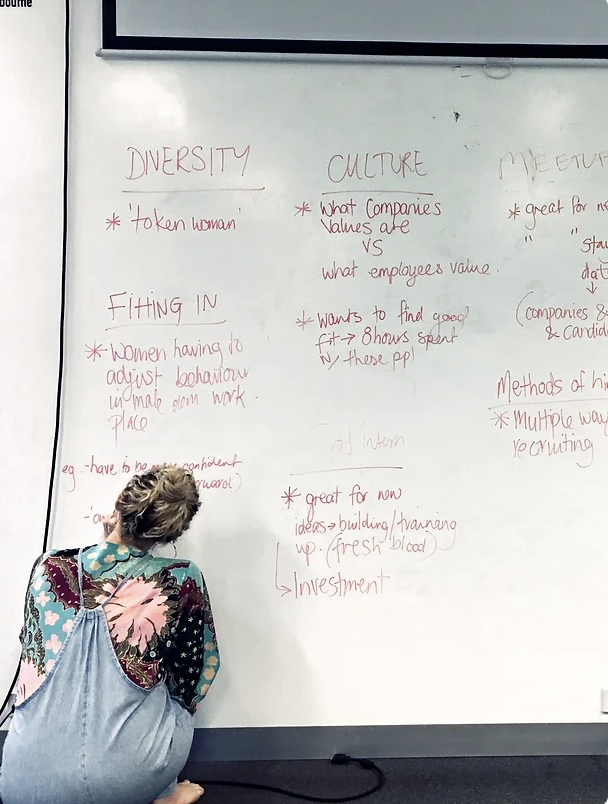 DIVERSITY
* 'token woman'
FITTING IN
* Women having to
adjust behaviour
in male dom work
place
eg. -have to be confident
CULTURE
* What Companies
Values are
VS
what employees value.
* wants to find good
fit → 8hours spent
w/ these ppl
intern
* great for new
ideas → building/training
up. (fresh blood)
↳ Investment
* great for
"     "
↓
(companies &
&
Methods of
* Multiple
recruiting